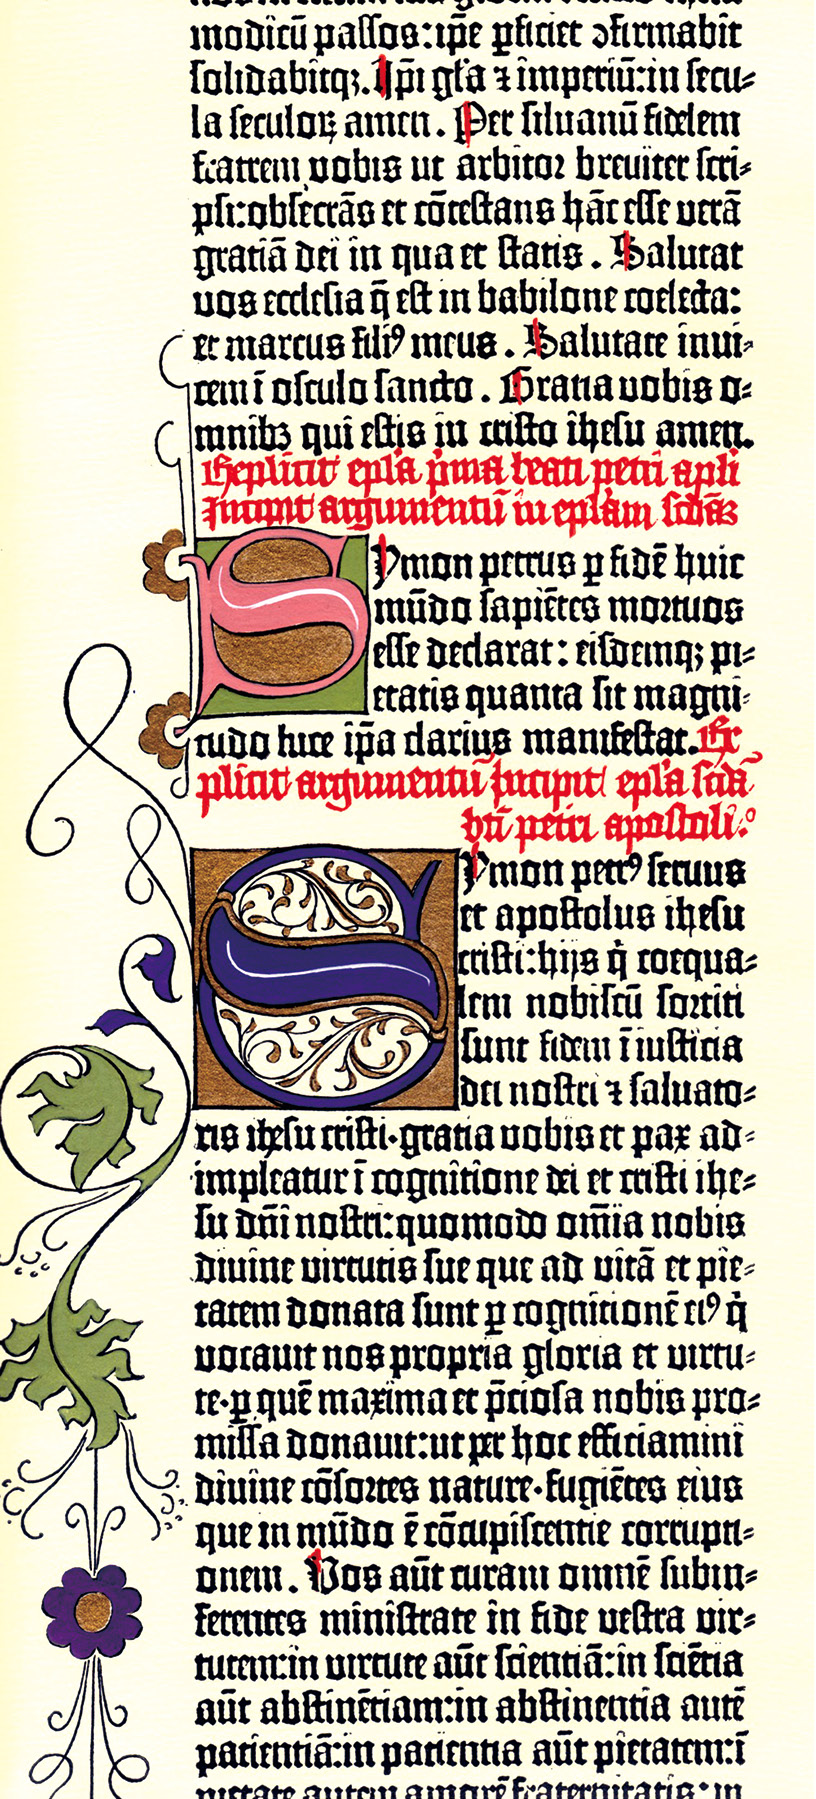 modicũ passos: ip̃e ꝑficiet ꝯfirmabit
solidabitqꝫ. Ip̃i gl̃a ⁊ imperiũ: in secu⸗
la seculoꝝ amen. Per siluanũ fidelem
fratrem vobis ut arbitor breviter scri⸗
psi: obsecrãs et cõtestans hãc esse verã
gratiã dei in qua et statis. Salutat
vos ecclesia q̃ est in babilone coelecta:
et marcus filiꝰ meus. Salutate invi⸗
cem ĩ osculo sancto. Gratia vobis o⸗
mnibꝫ qui estis in cristo ihesu amen.
Explicit epl̃a p̃ma beati petri apl̃i
Incipit argumentũ in epl̃am scd̃aꝫ
Symon petrus ꝑ fidẽ huic
mũdo sapiẽtes mortuos
esse declarat: eisdemqꝫ pi⸗
etatis quanta sit magni⸗
tudo luce ip̃a clarius manifestat. Ex
plicit argumentũ Incipit epl̃a scd̃a
bt̃i petri apostoli.
Symon petrꝰ servus
et apostolus ihesu
cristi: hijs q̇ coequa⸗
lem nobiscũ sortiti
sunt fidem ĩ iusticia
dei nostri ⁊ salvato⸗
ris ihesu cristi · gratia vobis et pax ad⸗
impleatur ĩ cognitione dei et cristi ihe⸗
su dñi nostri: quomodo om̃ia nobis
divine virtutis sue que ad vitã et pie⸗
tatem donata sunt ꝑ cognitionẽ eiꝰ q̇
vocavit nos propria gloria et virtu⸗
te · ꝑ quẽ maxima et p̃ciosa nobis pro⸗
missa donavit: ut per hoc efficiamini
divine cõsortes nature · fugiẽtes eius
que in mũdo ẽ cõcupiscentie corrupti⸗
onem. Vos aũt curam omnẽ subin⸗
ferentes ministrate in fide vestra vir⸗
tutem: in virtute aũt scientiã: in sciẽtia
aũt abstinẽtiam: in abstinentia autẽ
patientiã: in patientia aũt pietatem: ĩ
pietate autem amorẽ fraternitatis: in